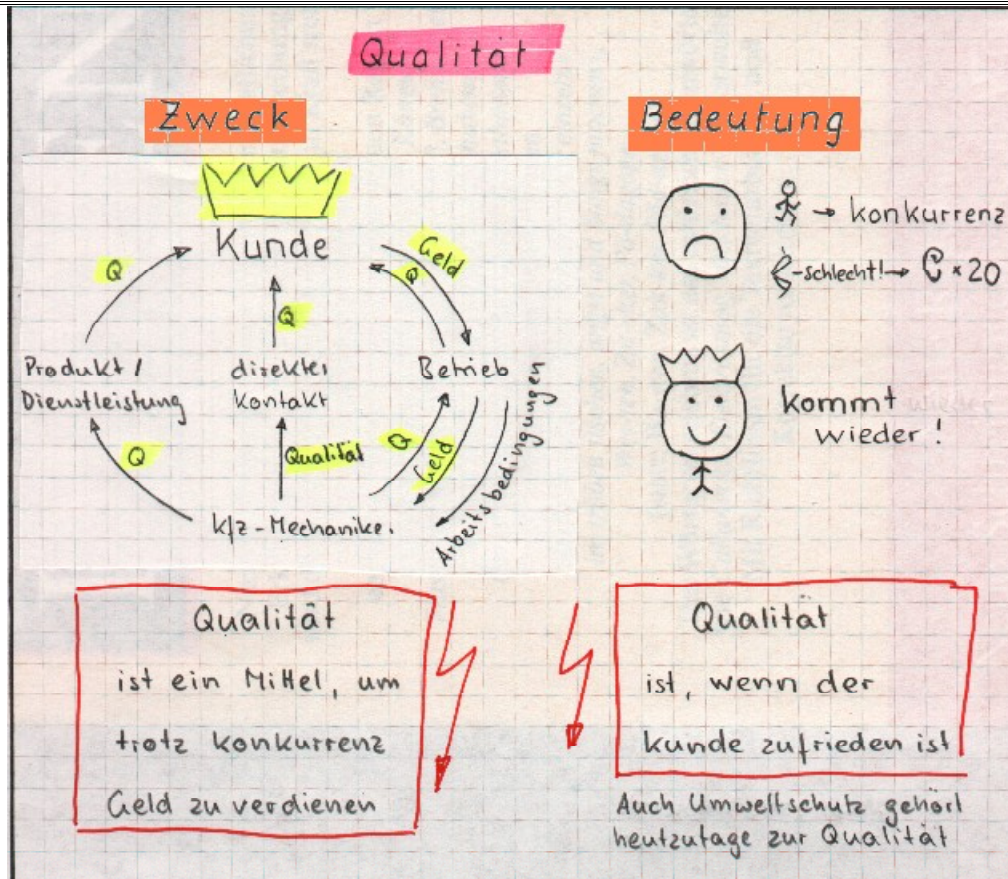 Qualität
Zweck
Kunde
Geld
Q
Q
Q
Produkt /
Dienstleistung
direkter
Kontakt
Betrieb
Q
Qualität
Q
Geld
Arbeitsbedingungen
Kfz-Mechaniker
Qualität
ist ein Mittel, um
trotz Konkurrenz
Geld zu verdienen
Bedeutung
→ Konkurrenz
-schlecht! → × 20
kommt
wieder!
Qualität
ist, wenn der
Kunde zufrieden ist
Auch Umweltschutz gehört
heutzutage zur Qualität